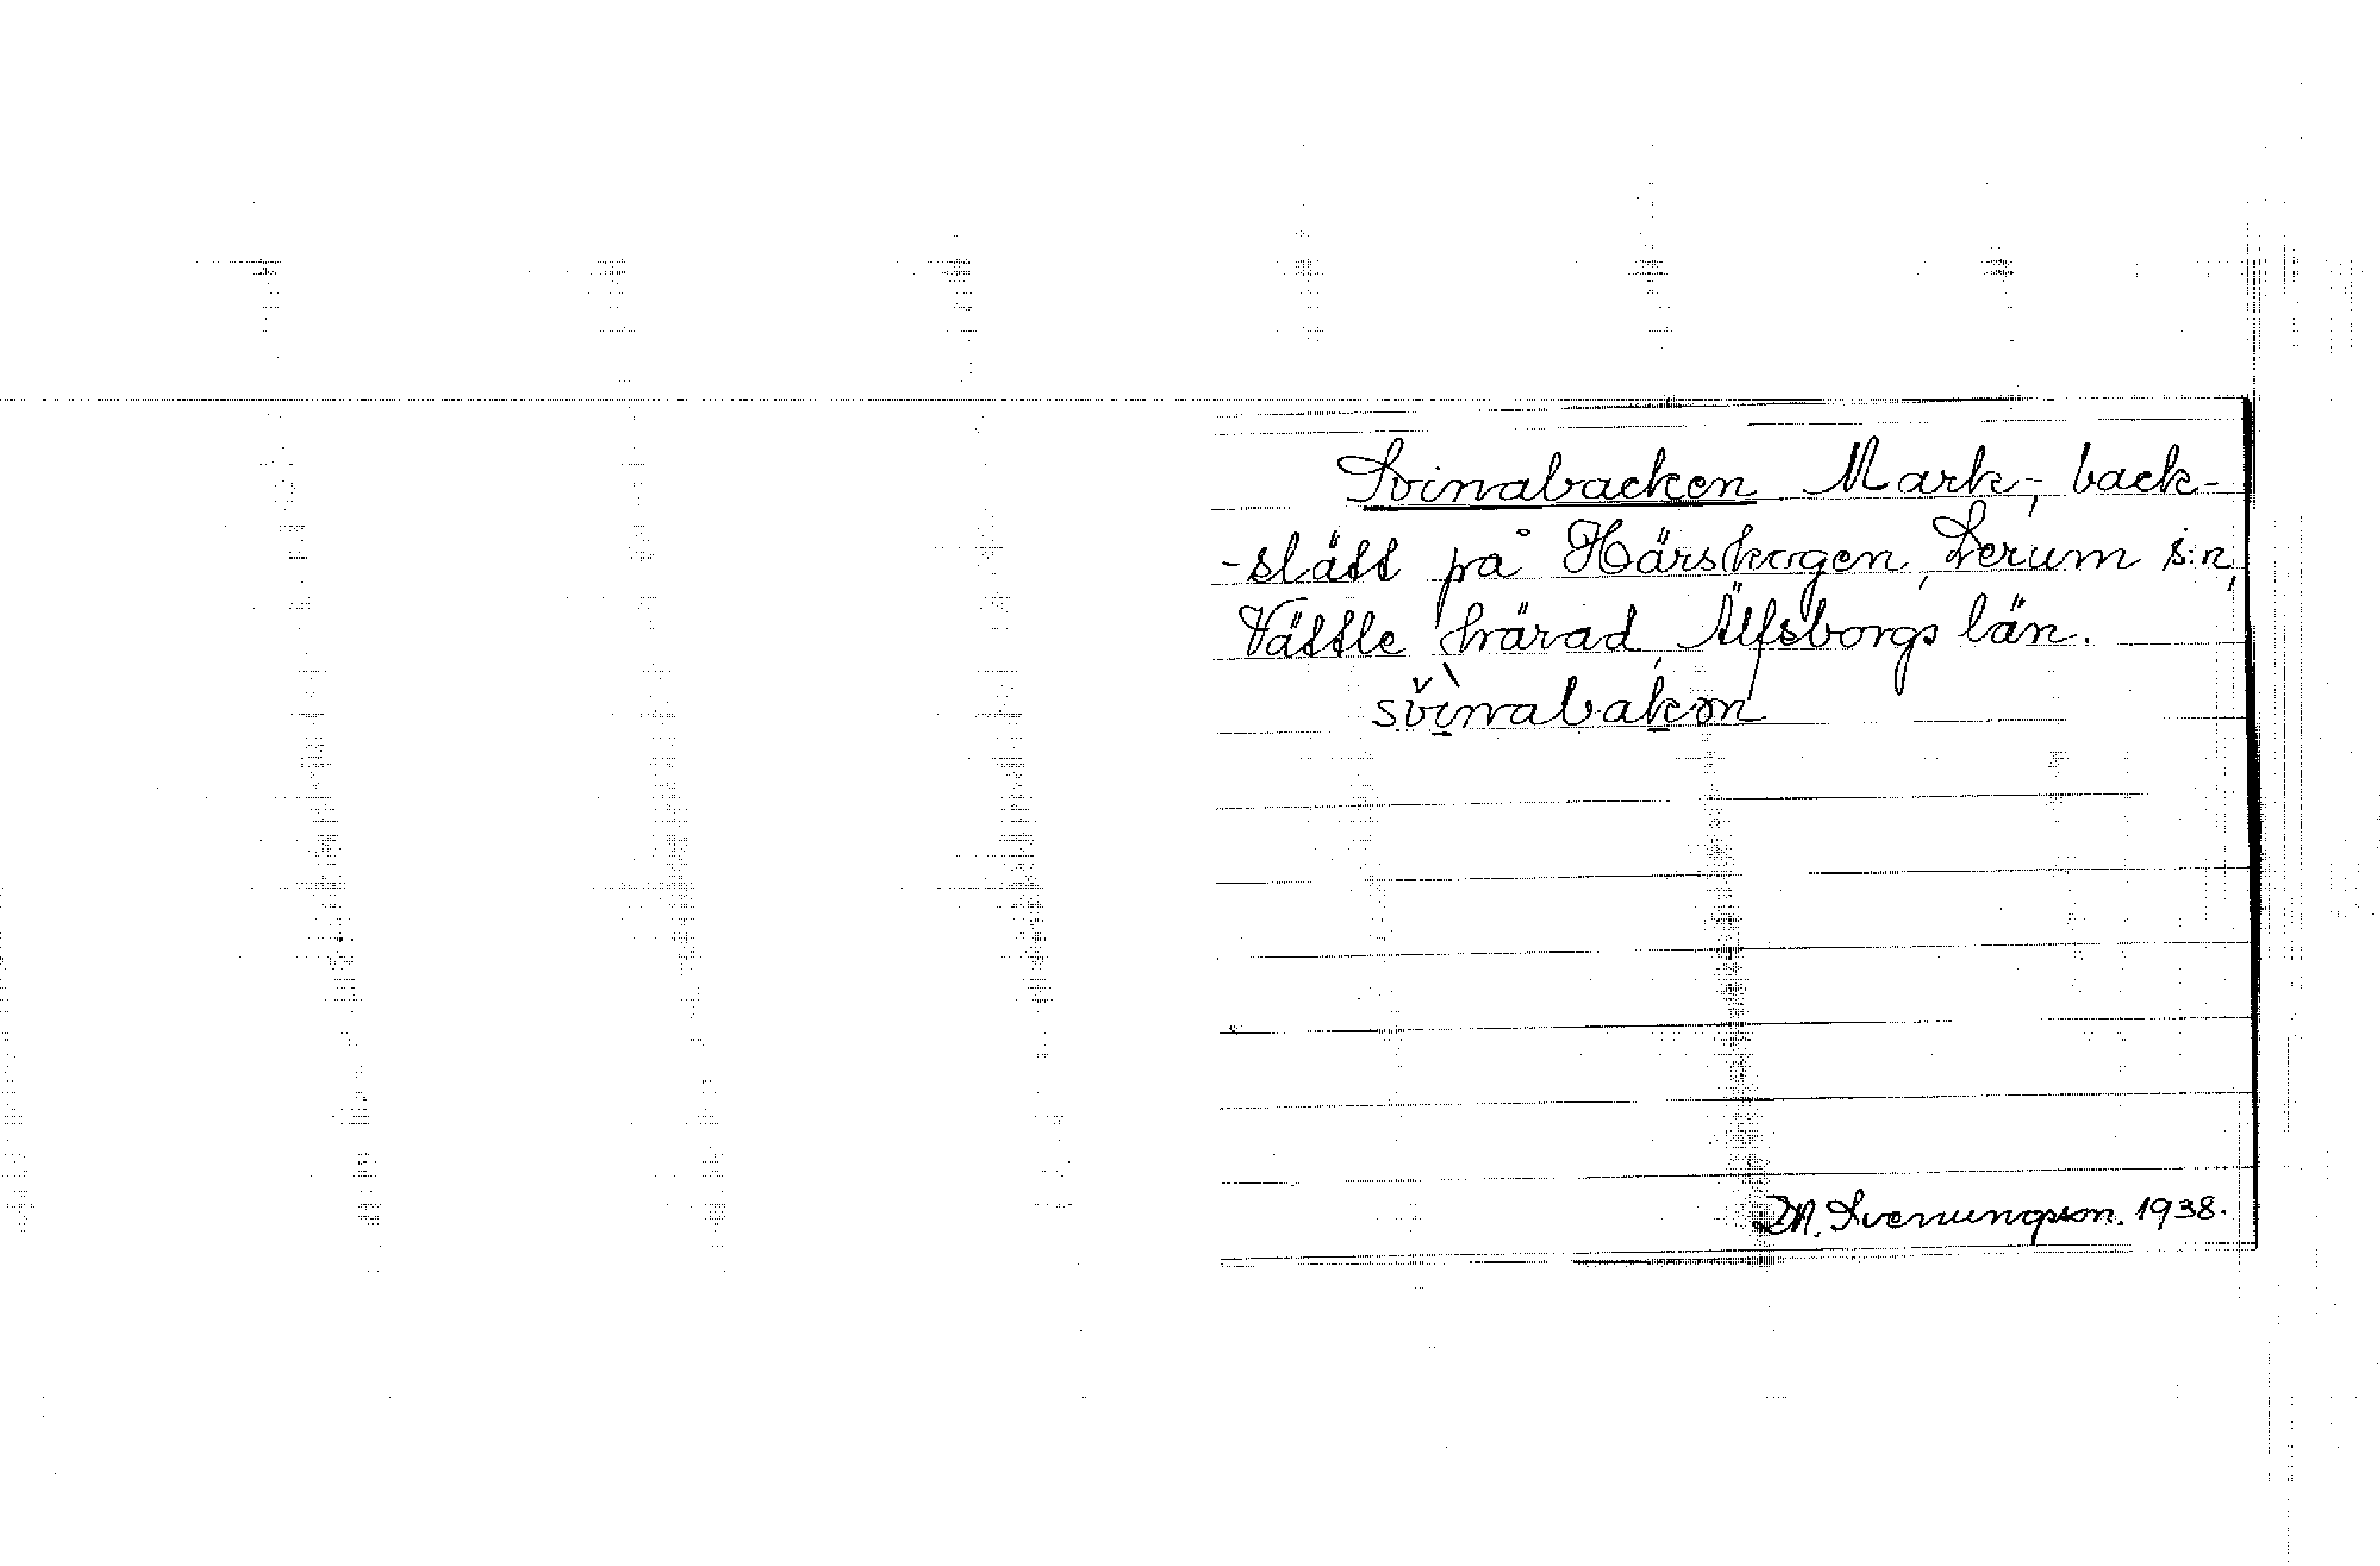 Svinabacken Mark-, back-
-slätt på Härskogen, Lerum s:n,
Vättle härad, Älfsborgs län.
svìnabakən
M. Svenungsson. 1938.